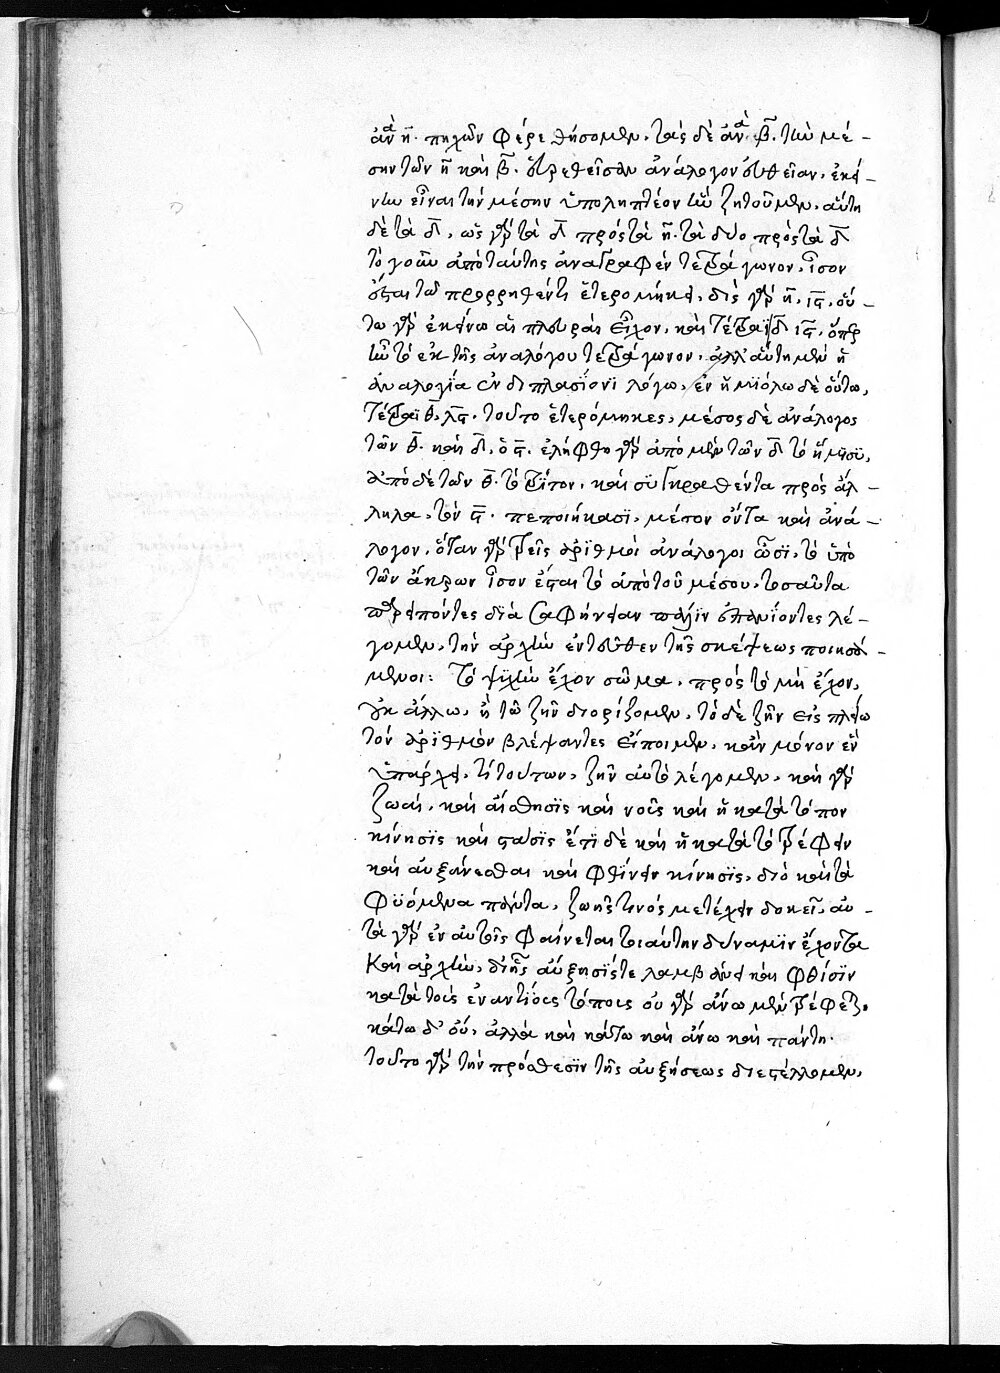 ἀνὰ η̄. πηχῶν φέρε θήσομεν. τὰς δὲ ἀνὰ β̄. τὴν μέ-
σην τῶν η̄ καὶ β̄. εὑρεθεῖσαν ἀνάλογον εὐθεῖαν, ἐκεί-
νην εἶναι τὴν μέσην ὑποληπτέον ἣν ζητοῦμεν. αὕτη
δὲ τὰ δ̄, ὡς γὰρ τὰ δ̄ πρὸς τὰ η̄. τὰ δύο πρὸς τὰ δ̄
τὸ γοῦν ἀπὸ ταύτης ἀναγραφὲν τετράγωνον, ἴσον
ἔσται τῶ προρρηθέντι ἑτερομήκει, δὶς γὰρ η̄, ις̄, οὕ-
τω γὰρ ἐκείνω αἱ πλευραὶ εἶχον, καὶ τετράκι δ̄ ις̄, ὅπερ
ἦν τὸ ἐκ τῆς ἀναλόγου τετράγωνον, ἀλλ' αὕτη μὲν ἡ
ἀναλογία ἐν διπλασίονι λόγω, ἐν ἡμιόλω δὲ οὕτω,
τετράκι θ̄, λς̄. τοῦτο ἑτερόμηκες, μέσος δὲ ἀνάλογος
τῶν θ̄. καὶ δ̄, ὁ ς̄. ἐλήφθω γὰρ ἀπὸ μὲν τῶν δ̄ τὸ ἥμισυ,
ἀπὸ δὲ τῶν θ̄. τὸ τρίτον, καὶ συγκραθέντα πρὸς ἄλ-
ληλα, τὸν ς̄. πεποιήκασι, μέσον ὄντα καὶ ἀνά-
λογον, ὅταν γὰρ τρεῖς ἀριθμοὶ ἀνάλογοι ὦσι, τὸ ὑπὸ
τῶν ἄκρων ἴσον ἔσται τὸ ἀπὸ τοῦ μέσου, τοσαῦτα
παρεπόντες διὰ σαφήνειαν πάλιν ἐπανιόντες λέ-
γομεν, τὴν ἀρχὴν ἐντεῦθεν τῆς σκέψεως ποιησά-
μενοι: Τὸ ψυχὴν ἔχον σῶμα, πρὸς τὸ μὴ ἔχον,
οὐκ ἄλλω, ἢ τῶ ζῆν διορίζομεν, τὸ δὲ ζῆν εἰς πλείω
τὸν ἀριθμὸν βλέψαντες εἴποιμεν, κἂν μόνον ἓν
ὑπάρχει, τὶ τούτων, ζῆν αὐτὸ λέγομεν, καὶ γὰρ
ζωαὶ, καὶ αἴσθησις καὶ νοῦς καὶ ἡ κατὰ τόπον
κίνησις καὶ στάσις ἔτι δὲ καὶ ἡ κατὰ τὸ τρέφειν
καὶ αὐξάνεσθαι καὶ φθίνειν κίνησις, διὸ καὶ τὰ
φυόμενα πάντα, ζωῆς τινὸς μετέχειν δοκεῖ, αὐ-
τὰ γὰρ ἐν αὐτοῖς φαίνεται τοιαύτην δύναμιν ἔχοντα
καὶ ἀρχὴν, δι' ἧς αὔξησίς τε λαμβάνει καὶ φθίσιν
κατὰ τοὺς ἐναντίους τόπους οὐ γὰρ ἄνω μὲν τρέφεται,
κάτω δ' οὔ, ἀλλὰ καὶ κάτω καὶ ἄνω καὶ πάντη.
τοῦτο γὰρ τὴν πρόσθεσιν τῆς αὐξήσεως διεστέλλομεν,